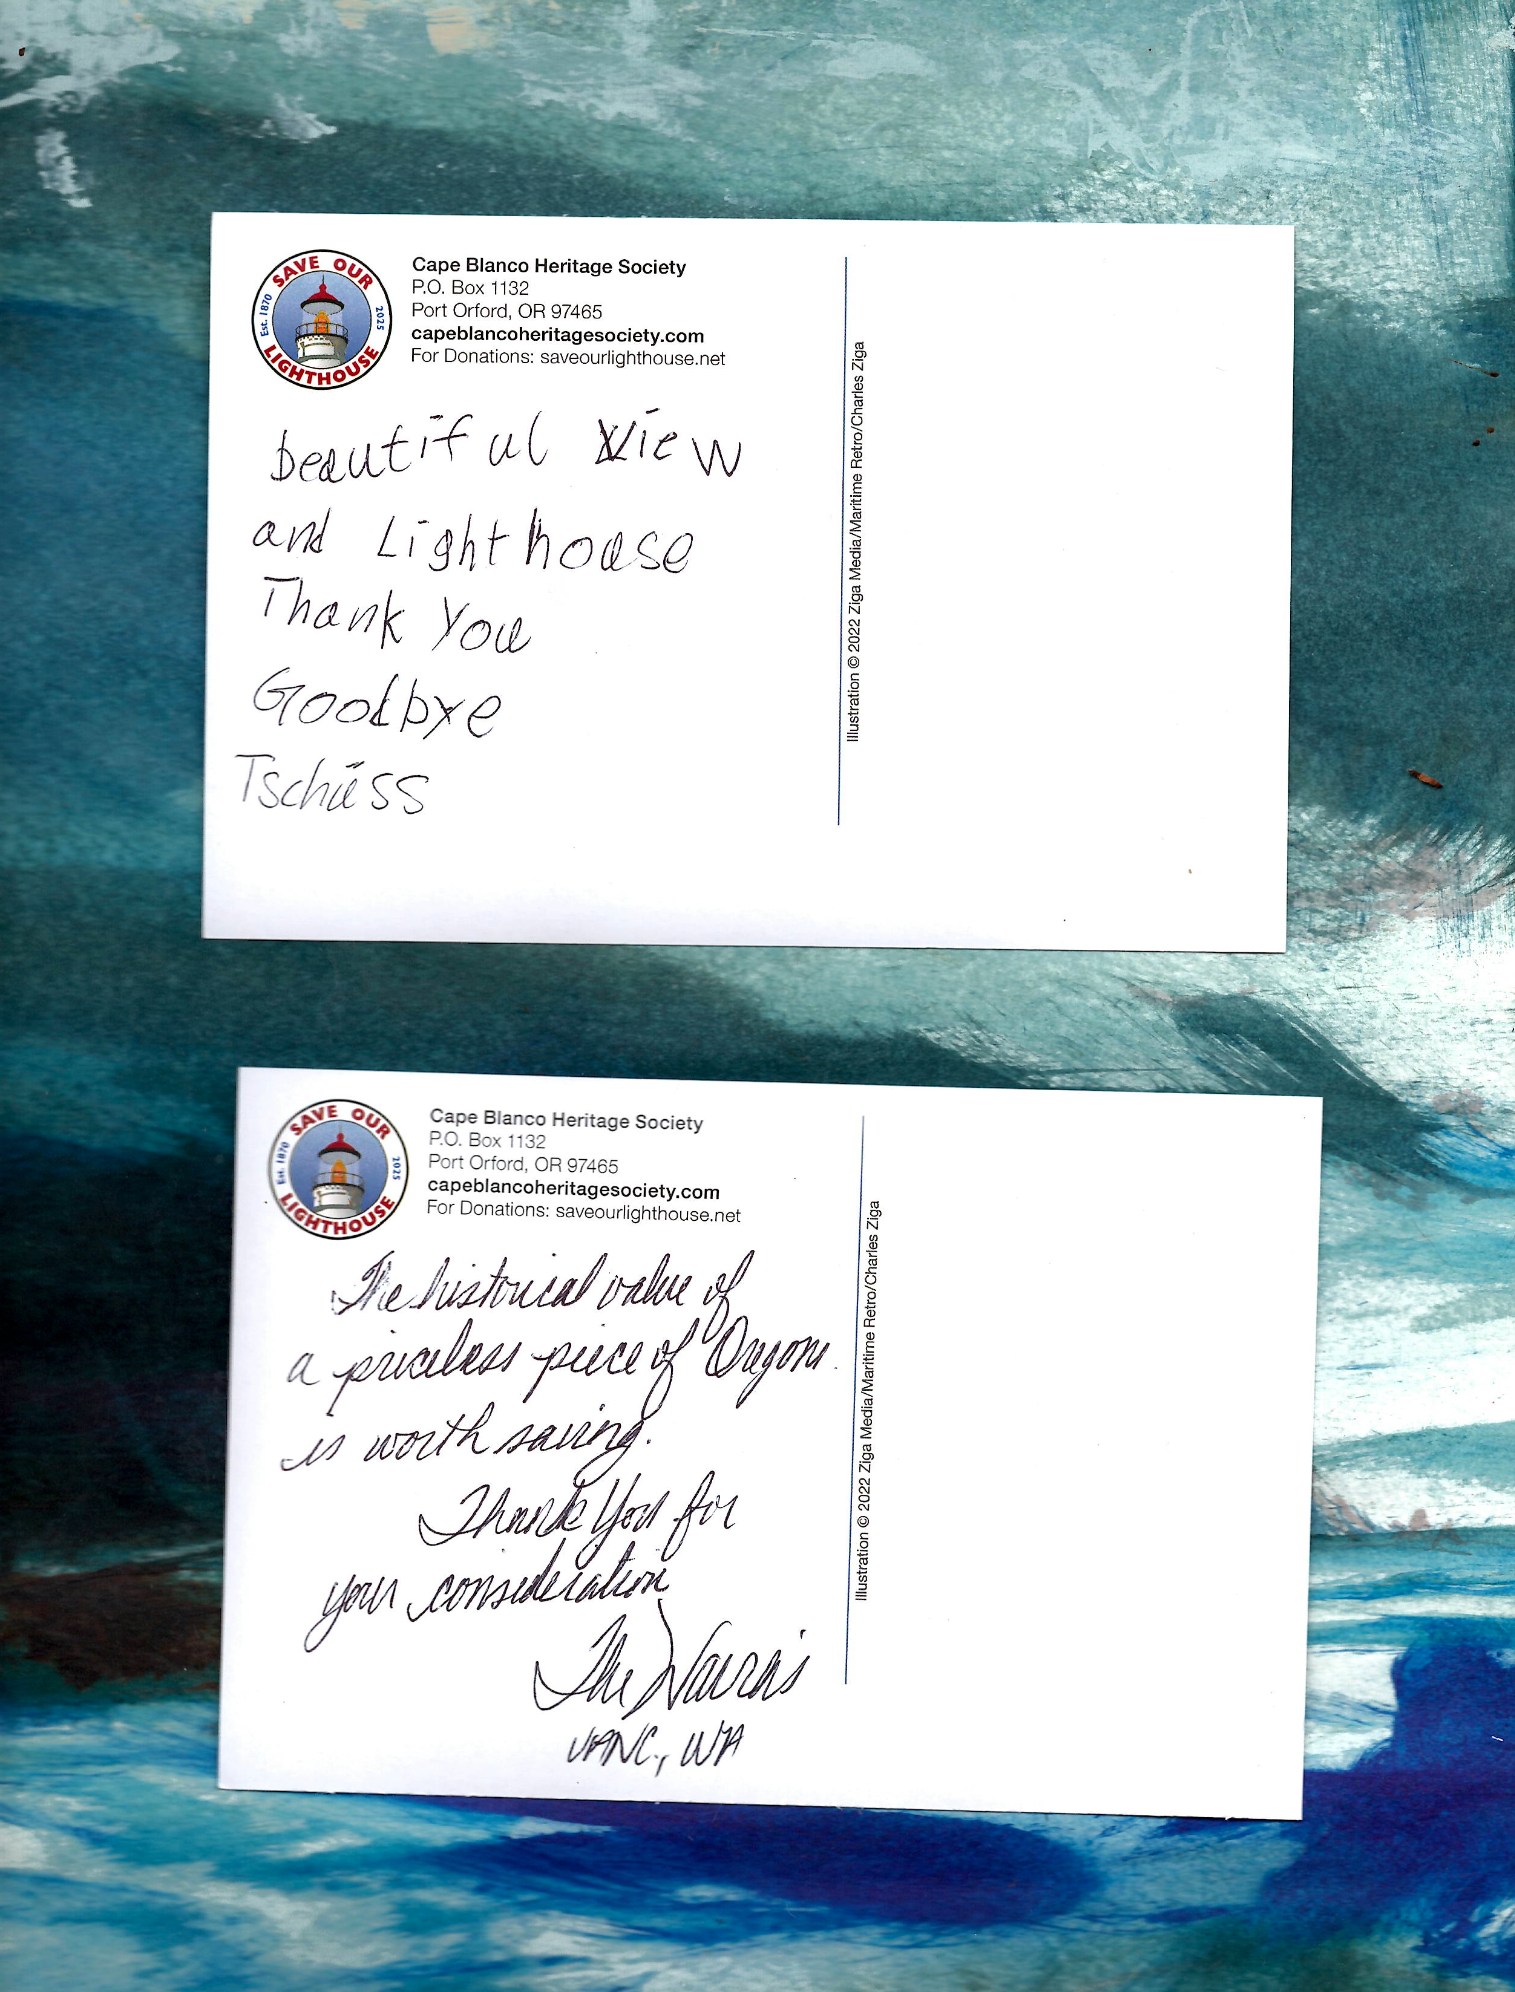 SAVE OUR
LIGHTHOUSE
Est. 1870
2025
Cape Blanco Heritage Society
P.O. Box 1132
Port Orford, OR 97465
capeblancoheritagesociety.com
For Donations: saveourlighthouse.net
beautiful View
and Lighthouse
Thank You
Goodbye
Tschüss
Illustration © 2022 Ziga Media/Maritime Retro/Charles Ziga
SAVE OUR
LIGHTHOUSE
Est. 1870
2025
Cape Blanco Heritage Society
P.O. Box 1132
Port Orford, OR 97465
capeblancoheritagesociety.com
For Donations: saveourlighthouse.net
The historical value of
a priceless piece of Oregons
is worth saving.
Thank You for
your consideration
The
VANC., WA
Illustration © 2022 Ziga Media/Maritime Retro/Charles Ziga